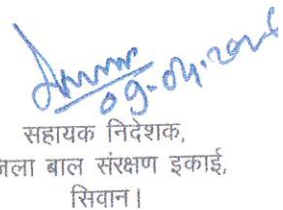 09.04.202
सहायक निदेशक,
जला बाल संरक्षण इकाई,
सिवान।